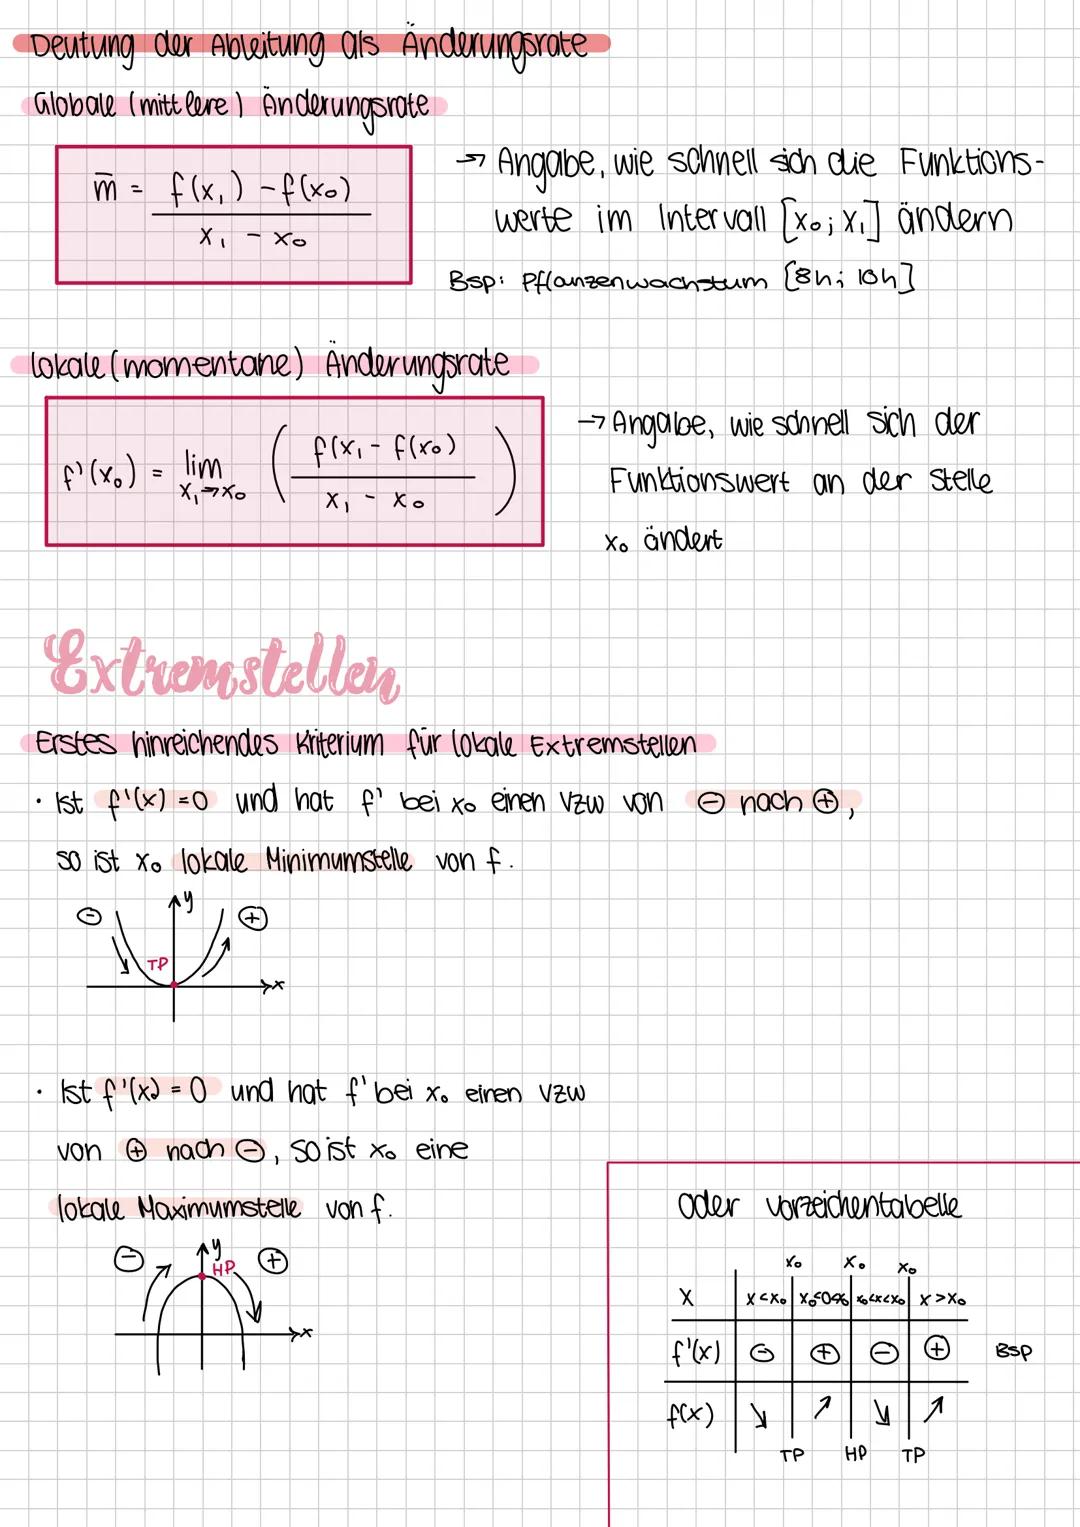 Deutung der Ableitung als Änderungsrate
Globale (mittlere) Änderungsrate
m̄ = f(x₁) - f(x₀) / x₁ - x₀
→ Angabe, wie schnell sich die Funktions-
werte im Intervall [x₀; x₁] ändern
Bsp: Pflanzenwachstum [8h; 10h]
lokale (momentane) Änderungsrate
f'(x₀) = lim x₁→x₀ ( f(x₁ - f(x₀) / x₁ - x₀ )
→ Angabe, wie schnell sich der
Funktionswert an der Stelle
x₀ ändert
Extremstellen
Erstes hinreichendes Kriterium für lokale Extremstellen
· Ist f'(x) = 0 und hat f' bei x₀ einen VZW von ⊖ nach ⊕,
so ist x₀ lokale Minimumstelle von f.
⊖ y ⊕
TP
x
· Ist f'(x) = 0 und hat f' bei x₀ einen VZW
von ⊕ nach ⊖, so ist x₀ eine
lokale Maximumstelle von f.
⊖ y ⊕
HP
x
oder Vorzeichentabelle
x₀ x₀ x₀
x x<x₀ x₀<x<x₀ x>x₀
f'(x) ⊖ ⊕ ⊖ ⊕ BSP
f(x) ↘ ↗ ↘ ↗
TP HP TP